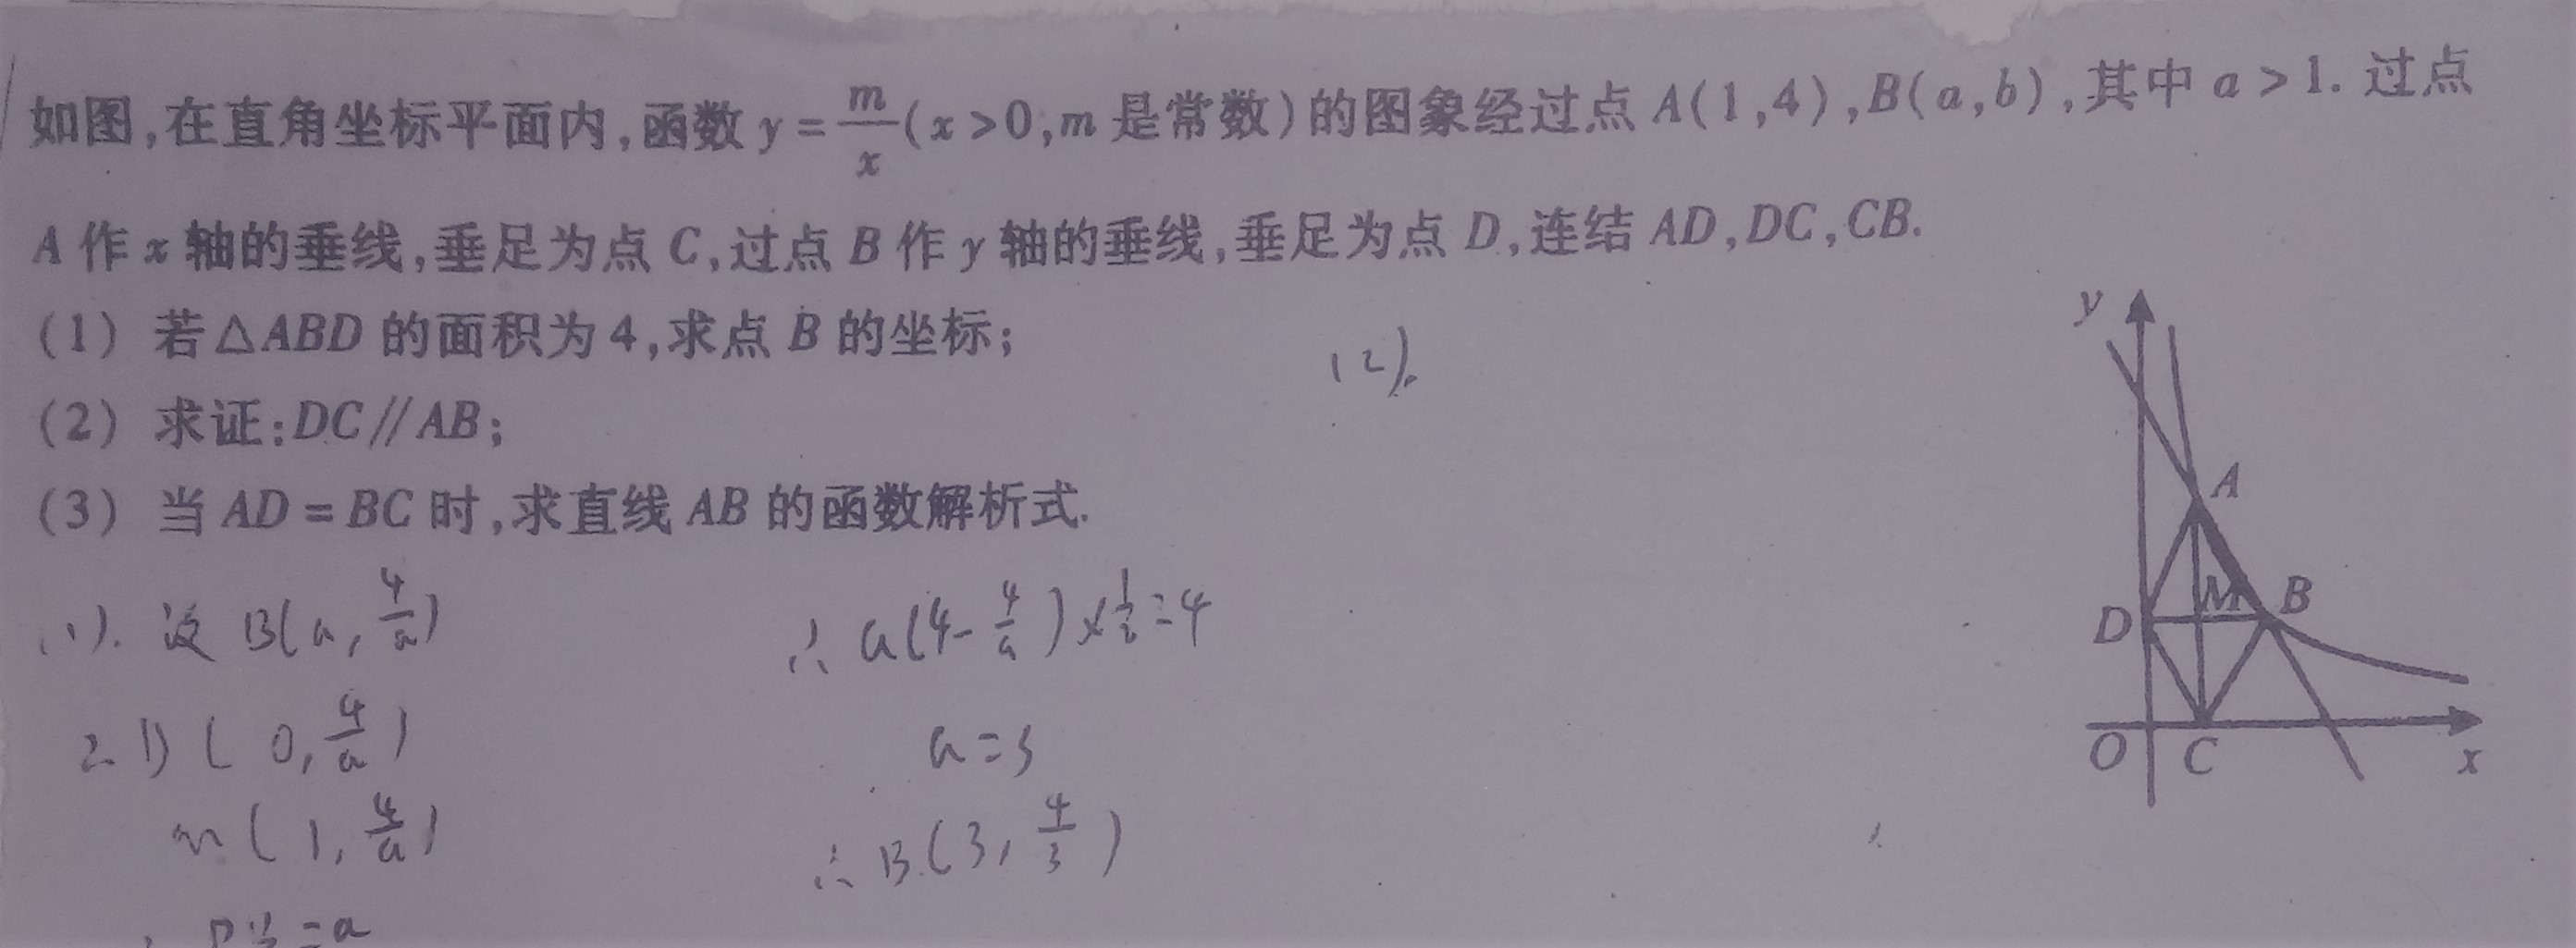 如图,在直角坐标平面内,函数 y = m/x (x>0,m 是常数)的图象经过点 A(1,4),B(a,b),其中 a>1. 过点
A 作 x 轴的垂线,垂足为点 C,过点 B 作 y 轴的垂线,垂足为点 D,连结 AD,DC,CB.
(1) 若△ABD 的面积为 4,求点 B 的坐标;
(2) 求证:DC∥AB;
(3) 当 AD=BC 时,求直线 AB 的函数解析式.
(1). 设 B(a, 4/a)
D(0, 4/a)
M(1, 4/a)
=a
∴ a(4-4/a)×1/2=4
a=3
∴ B(3, 4/3)
(2).
y
A
M B
D
O C x